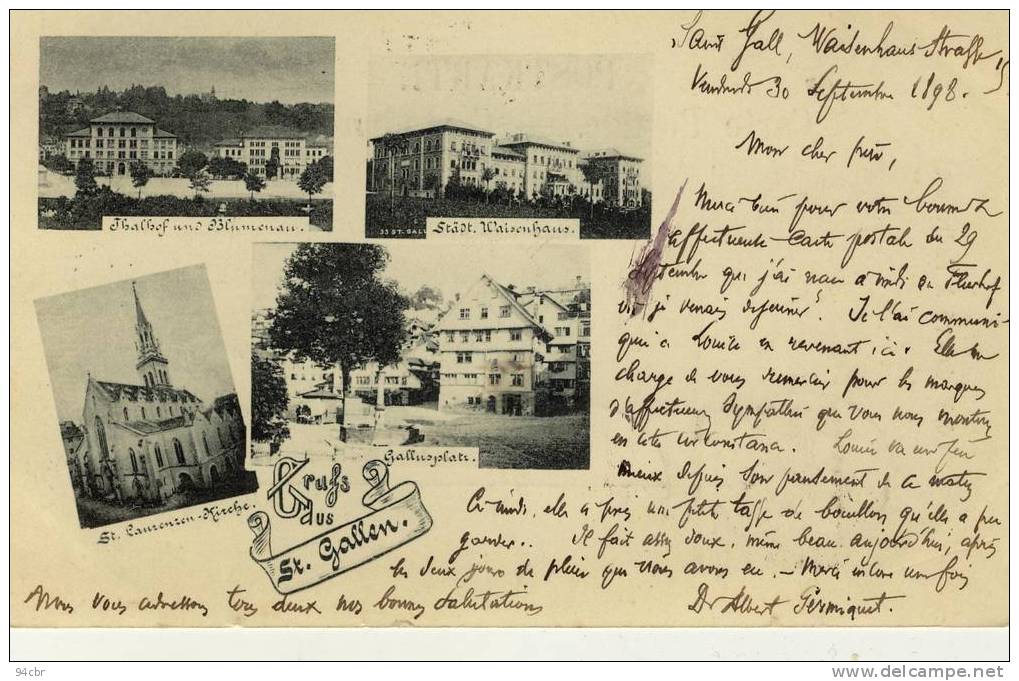 Saint Gall, Waisenhaus Strasse 15
Vendredi 30 Septembre 1898.
Mon cher père,
Merci bien pour votre bonne et
affectueuse Carte postale du 29
Septembre que j'ai reçu à midi au
où je venais déjeuner. Je l'ai communi-
quée à Louise en revenant ici. Elle me
charge de vous remercier pour les marques
d'affectueuse Sympathie que vous nous montrez
en cette circonstance. Louise va un peu
mieux depuis son pansement de ce matin
Ce midi, elle a pris une petite tasse de bouillon qu'elle a pu
garder.. Il fait assez doux, même beau aujourd'hui, après
les deux jours de pluie que nous avons eu. – Merci encore une fois
Nous vous adressons tous deux nos bonnes Salutations
Dr Albert Permiquet.
Thalhof und Blumenau.
33 ST. GALL
Städt. Waisenhaus.
St. Laurenzen-Kirche.
Gallusplatz.
Gruss
aus
St. Gallen.
94cbr
delcampe.net